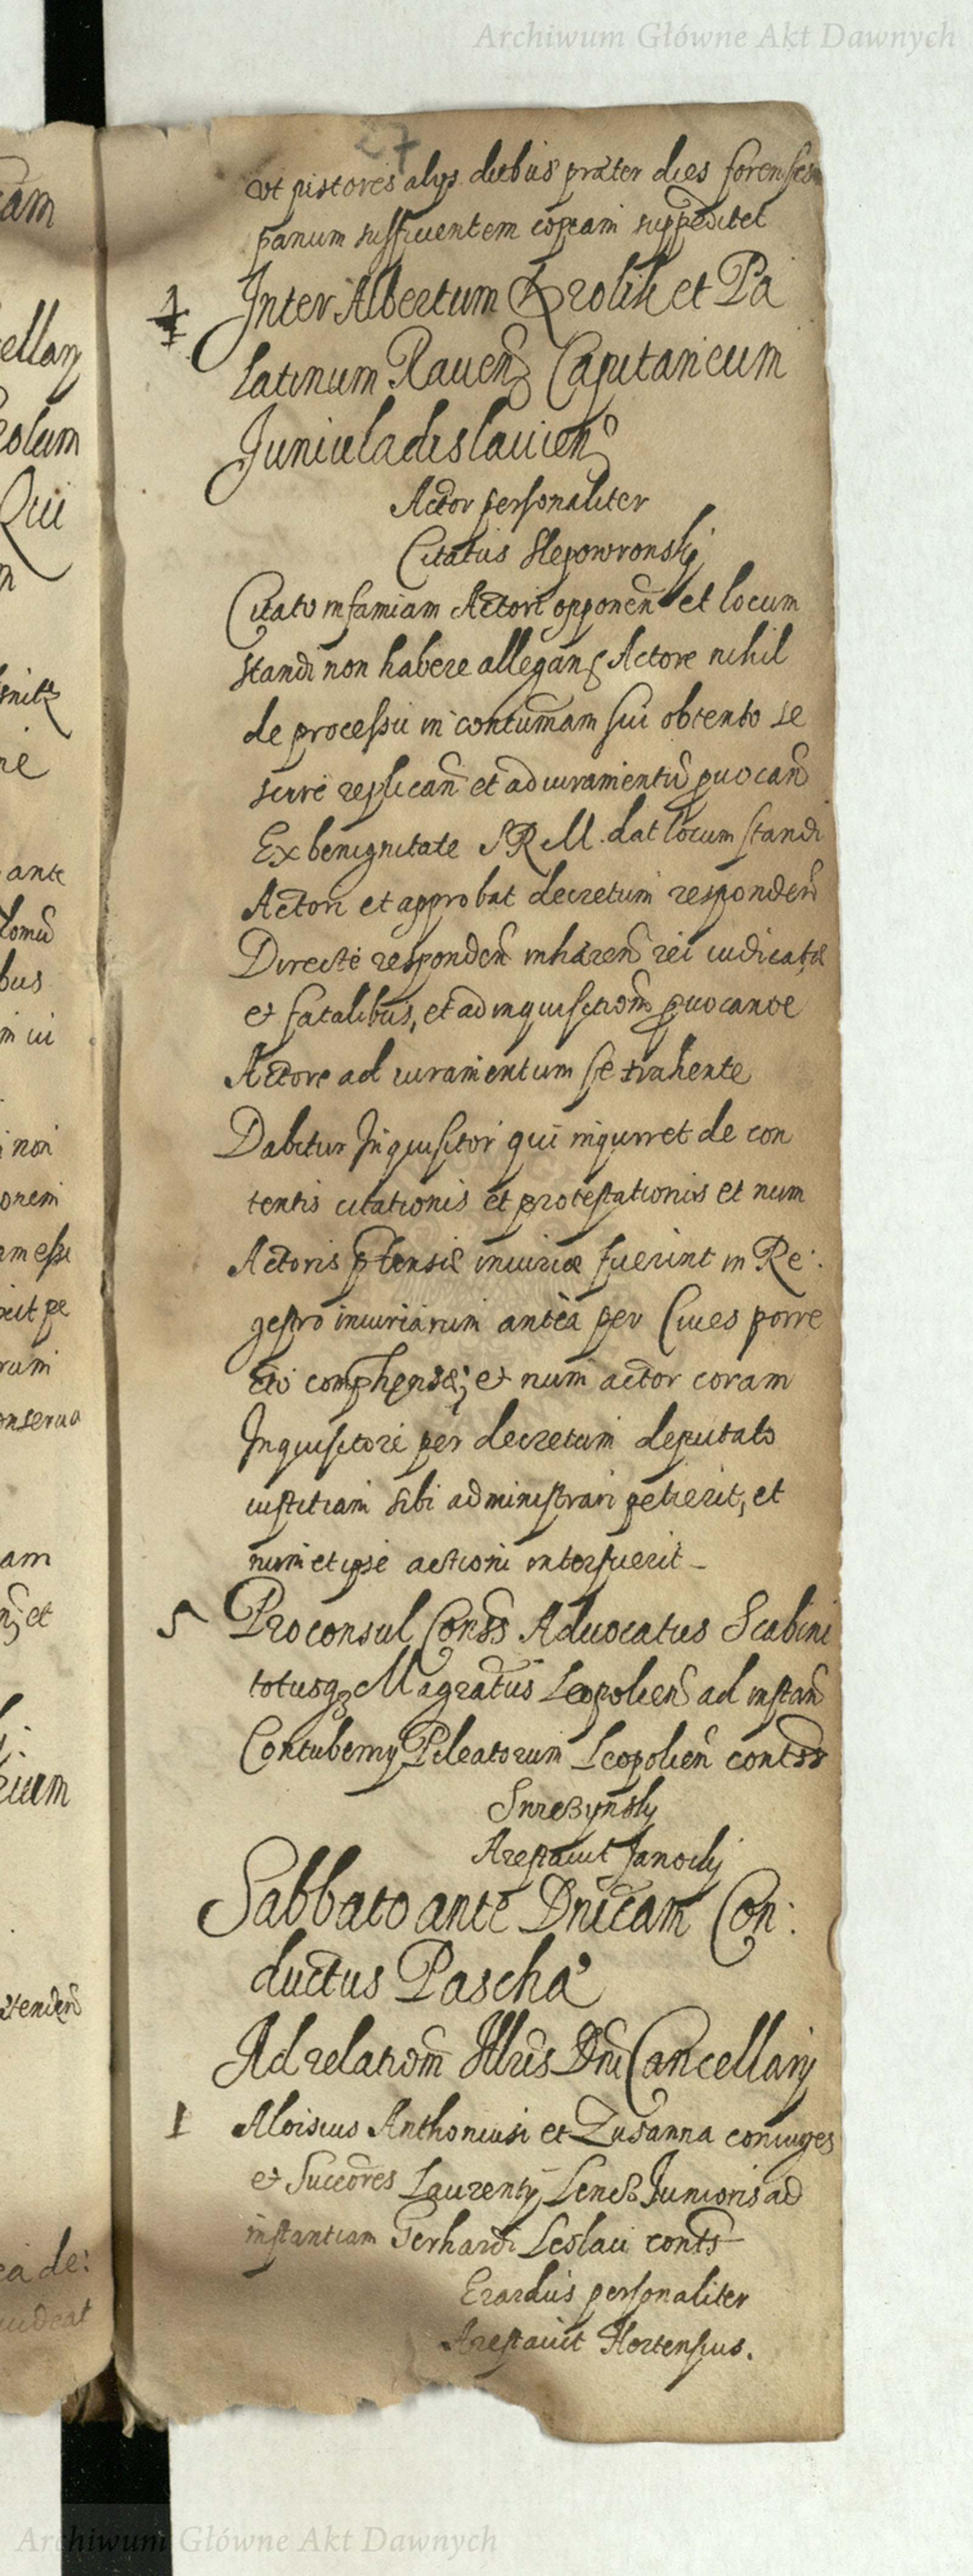 Archiwum Główne Akt Dawnych
27
am
ellarij
olum
Qui
m
ne
ante
bus
m iu
non
onem
am esse
rum
onserua
am
et
rium
ea de:
udeat
vt pistores alijs diebus præter dies forenses
panum sufficientem copiam suppeditet
4
Inter Albertum Krolik et Pa
latinum Rauen Capitaneum
Juniuladislauien
Actor personaliter
Citatus Slepowronskij
Citato infamiam Actori opponen et locum
standi non habere allegan Actore nihil
de processu in contumam sui obtento se
scire replican et ad iuramentũ prouocan
Ex benignitate S R M. dat locum standi
Actori et approbat decretum responden
Directe responden inhæren rei iudicatæ
et fatalibus, et ad inquisitiom prouocante
Actore ad iuramentum se trahente
Dabitur Inquisitor qui inquirret de con
tentis citationis et protestationis et num
Actoris ptensæ iniuriæ fuerint in Re:
gestro iniuriarum antea per Ciues porre
cto comphensæ; et num actor coram
Inquisitore per decretum deputato
iustitiam sibi administrari petierit, et
num et ipse actioni interfuerit –
5
Proconsul Conss Aduocatus Scabini
totusq Magratus Leopolien ad instan
Contubernij Pileatorum Leopolien contss
Arestauit Janockij
Sabbato ante Dnicam Con:
ductus Pascha
Ad relationm Illris Dni Cancellarij
1
Aloisius Anthoniusi et Zusanna coniuges
et Succores Laurentij Junioris ad
instantiam Gerhardi Leslau conts
Erardus personaliter
Arestauit Hortensius.
Archiwum Główne Akt Dawnych